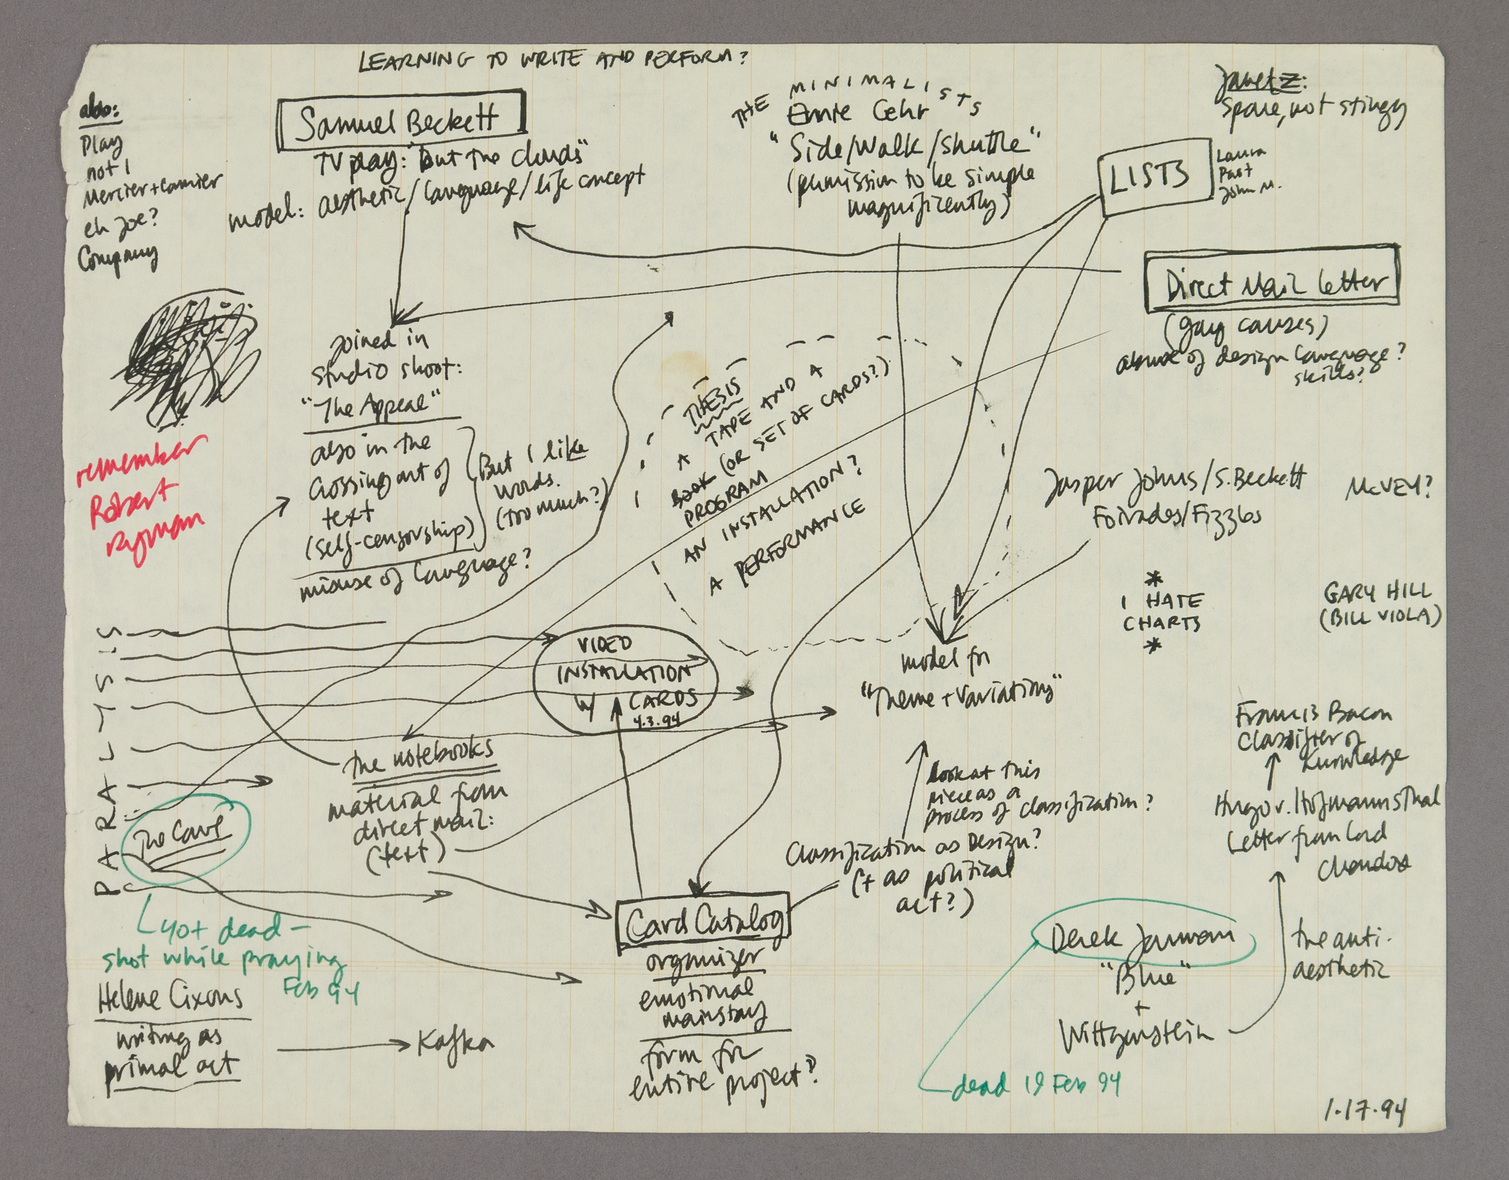 LEARNING TO WRITE AND PERFORM?
also:
Play
not I
Mercier + Camier
eh Joe?
Company
Samuel Beckett
TV play: "but the clouds"
model: aesthetic/language/life concept
THE MINIMALISTS
Ernie Gehr
"Side/Walk/Shuttle"
(permission to be simple
magnificently)
Janet Z:
Spare, not stingy
LISTS
Laura
Past
John M.
Direct Mail Letter
(gay causes)
abuse of design language?
skills?
joined in
studio shoot:
"The Appeal"
also in the
crossing out of
text
(self-censorship)
misuse of language?
But I like
words.
(too much?)
remember
Robert
Ryman
THESIS
A TAPE AND A
BOOK (OR SET OF CARDS?)
PROGRAM
AN INSTALLATION?
A PERFORMANCE
Jasper Johns/S. Beckett
Foirades/Fizzles
McVEY?
*
I HATE
CHARTS
*
GARY HILL
(BILL VIOLA)
PARALYSIS
VIDEO
INSTALLATION
W/ CARDS
4.3.94
model for
"Theme + Variations"
the notebooks
material from
direct mail:
(text)
The Cave
40+ dead –
shot while praying
Feb 94
Helene Cixous
writing as
primal act
Kafka
Card Catalog
organizer
emotional
mainstay
form for
entire project?
look at this
piece as a
process of classification?
Classification as Design?
(+ as political
act?)
Francis Bacon
Classifier of
Knowledge
Hugo v. Hofmannsthal
Letter from Lord
Chandos
the anti-
aesthetic
Derek Jarman
"Blue"
+
Wittgenstein
dead 19 Feb 94
1.17.94